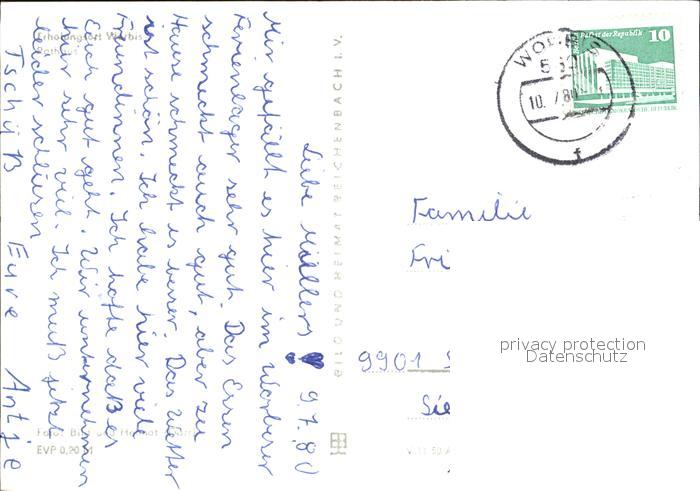 Erholungsort Worbis
Rathaus
Liebe Müllers 9.7.80
Mir gefällt es hier im Worbiser
Ferienlager sehr gut. Das Essen
schmeckt auch gut, aber zu
Hause schmeckt es besser. Das Wetter
ist schön. Ich habe hier viele
Freundinnen. Ich hoffe daß es
Euch gut geht. Wir unternehmen
hier sehr viel. Ich muß jetzt
leider schliesen
Tschüß Eure Antje
EVP 0,20 M
BILD UND HEIMAT REICHENBACH I. V.
WORBIS
10.7.80
10
Palast der Republik
Familie
Fri
9901
Sie
privacy protection
Datenschutz